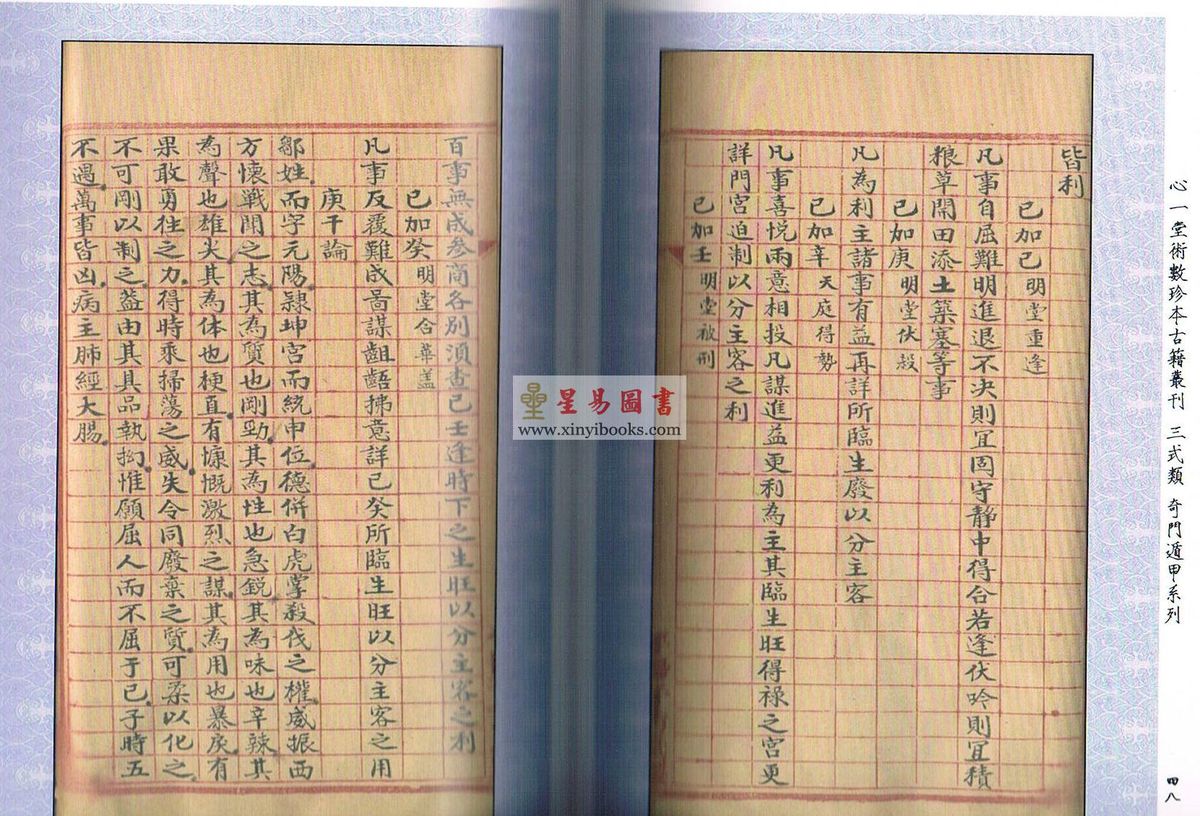 心一堂術數珍本古籍叢刊 三式類 奇門遁甲系列
四八
皆利
己加己 明堂重逢
凡事自屈難明進退不决則宜固守靜中得合若逢伏吟則宜積
粮草開田添土築墓等事
己加庚 明堂伏殺
凡為利主諸事有益再詳所臨生廢以分主客
己加辛 天庭得勢
凡事喜悦兩意相投凡謀進益更利為主其臨生旺得祿之宮更
詳門宮迫制以分主客之利
己加壬 明堂被刑
百事無成參商各別須查己壬逢時下之生旺以分主客之利
己加癸 明堂合華盖
凡事反覆難成啚謀齟齬拂意詳己癸所臨生旺以分主客之用
庚干論
鄒姓而字元陽隷坤宮而統申位德併白虎掌殺伐之權威振西
方懷戦鬪之志其為質也剛勁其為性也急鋭其為味也辛辣其
為聲也雄尖其為体也梗直有慷慨激烈之謀其為用也暴戾有
果敢勇徃之力得時乘掃蕩之威失令同廢棄之質可柔以化之
不可剛以制之盖由其具品執拗惟願屈人而不屈于己子時五
不遇萬事皆凶病主肺經大腸
星易圖書
www.xinyibooks.com